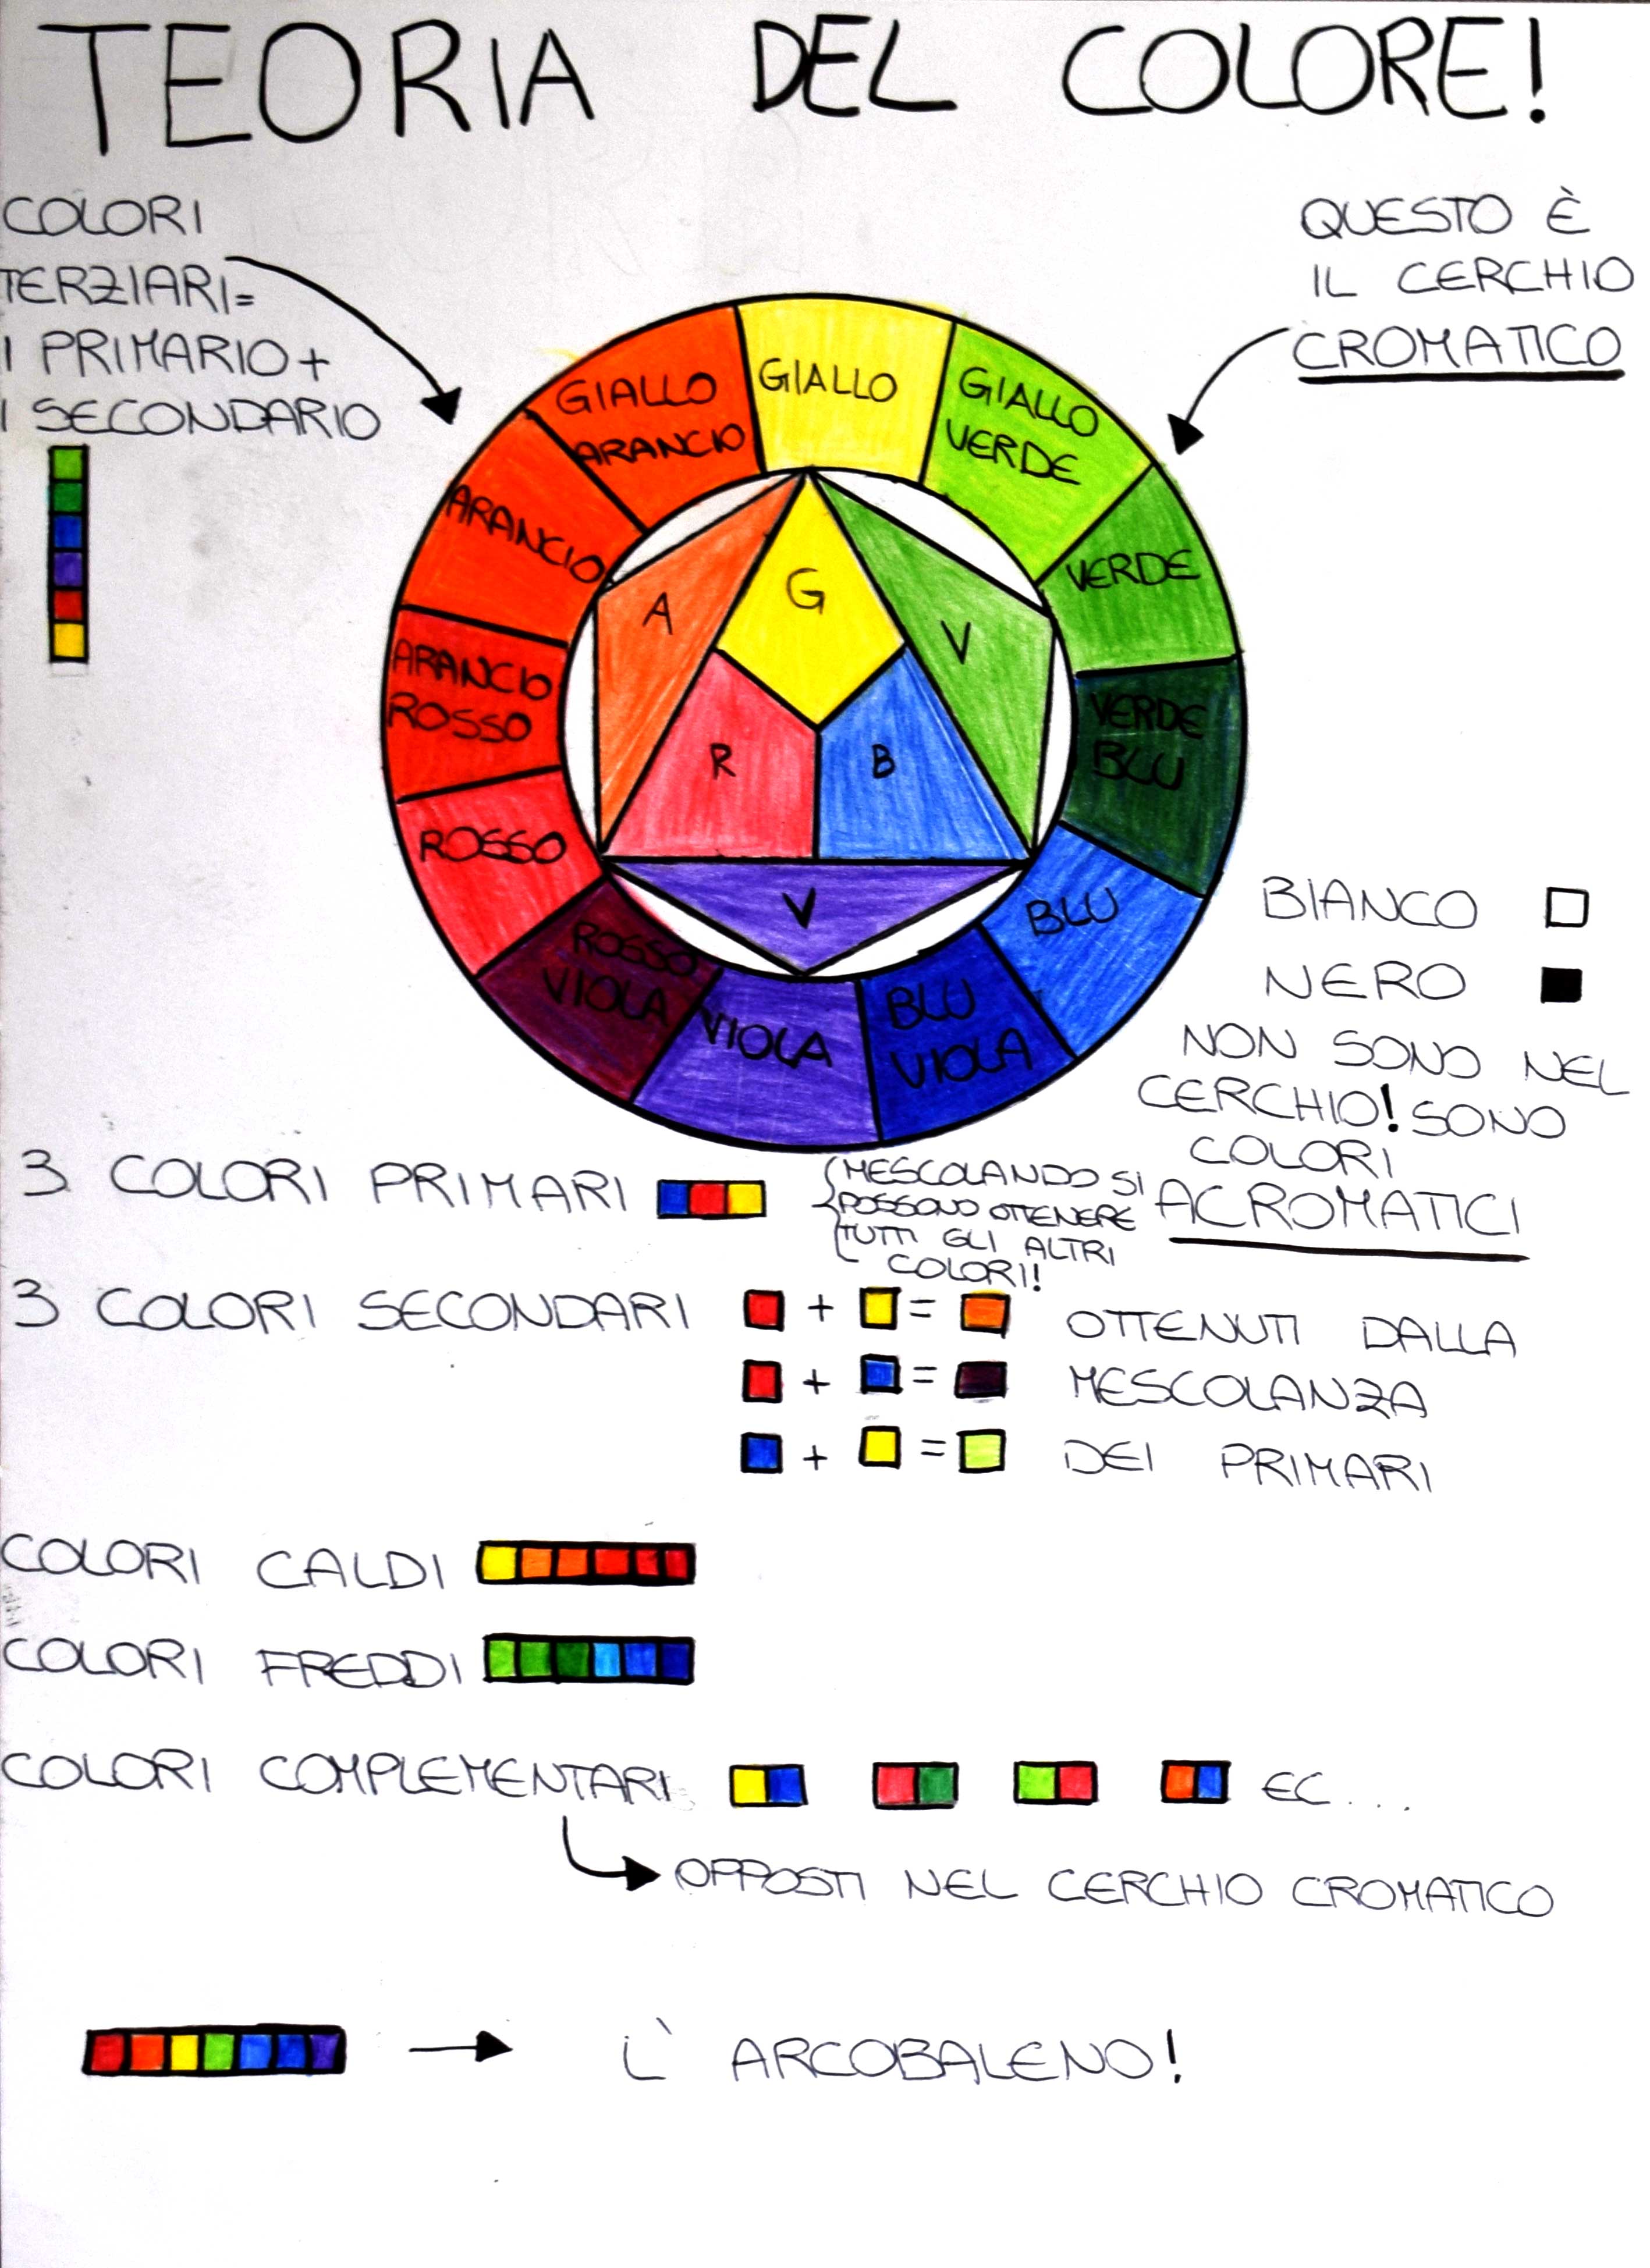 TEORIA DEL COLORE!
COLORI
TERZIARI=
1 PRIMARIO +
1 SECONDARIO
QUESTO È
IL CERCHIO
CROMATICO
GIALLO
GIALLO
VERDE
VERDE
VERDE
BLU
BLU
BLU
VIOLA
VIOLA
ROSSO
VIOLA
ROSSO
ARANCIO
ROSSO
ARANCIO
GIALLO
ARANCIO
A
G
V
R
B
V
BIANCO
NERO
NON SONO NEL
CERCHIO! SONO
COLORI
ACROMATICI
3 COLORI PRIMARI
MESCOLANDO SI
POSSONO OTTENERE
TUTTI GLI ALTRI
COLORI!
3 COLORI SECONDARI
+ =
+ =
+ =
OTTENUTI DALLA
MESCOLANZA
DEI PRIMARI
COLORI CALDI
COLORI FREDDI
COLORI COMPLEMENTARI EC...
OPPOSTI NEL CERCHIO CROMATICO
L' ARCOBALENO!